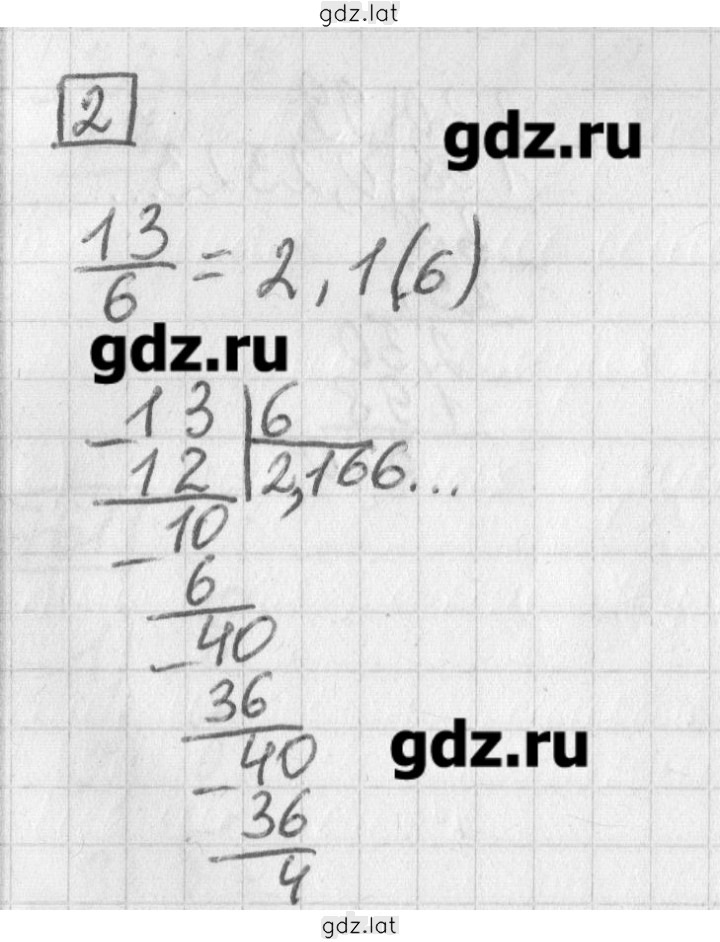 gdz.lat
2
gdz.ru
13/6 = 2,1(6)
gdz.ru
-13 | 6
12 | 2,166...
-10
6
-40
36
gdz.ru
-40
36
4
gdz.lat